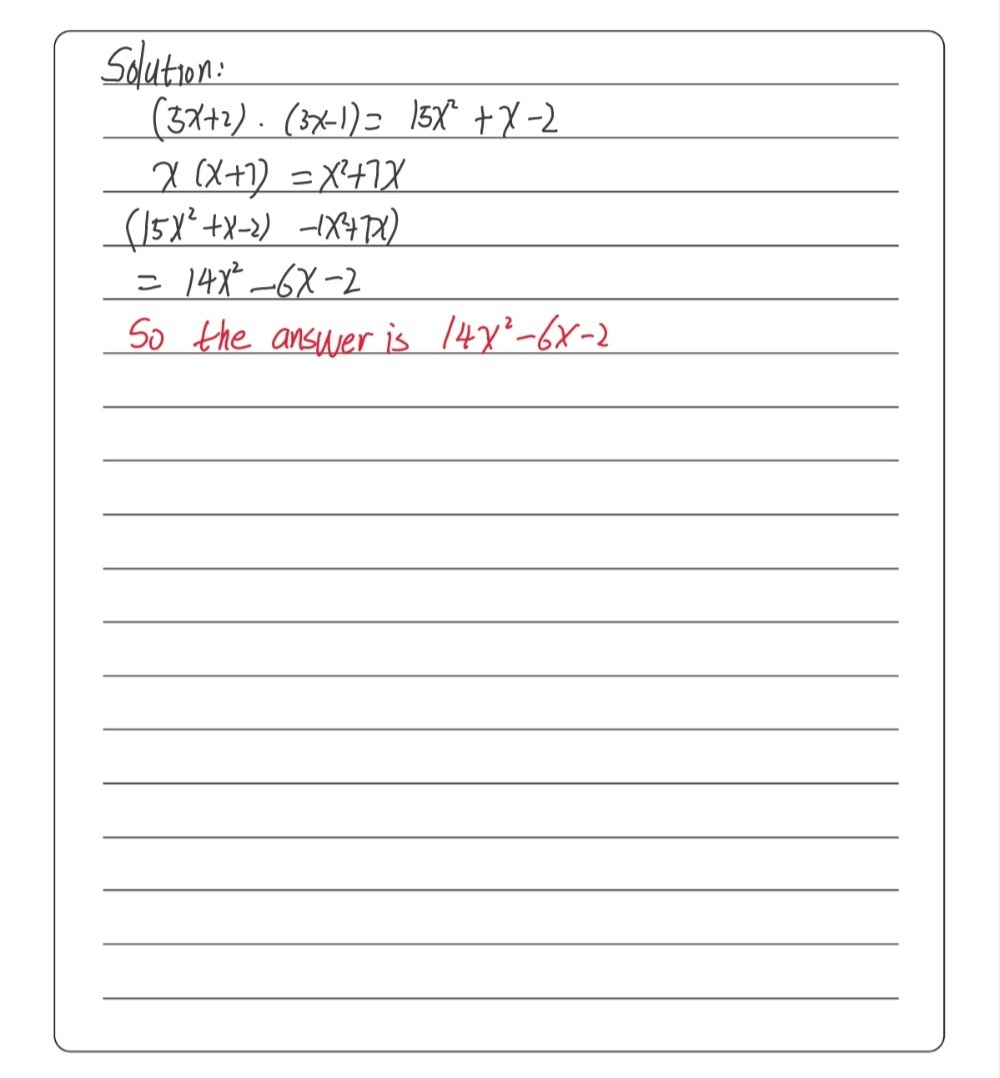 Solution:
(5x+2) · (3x-1) = 15x² + x - 2
x (x+7) = x²+7x
(15x² +x-2) -(x²+7x)
= 14x² -6x -2
So the answer is 14x²-6x-2